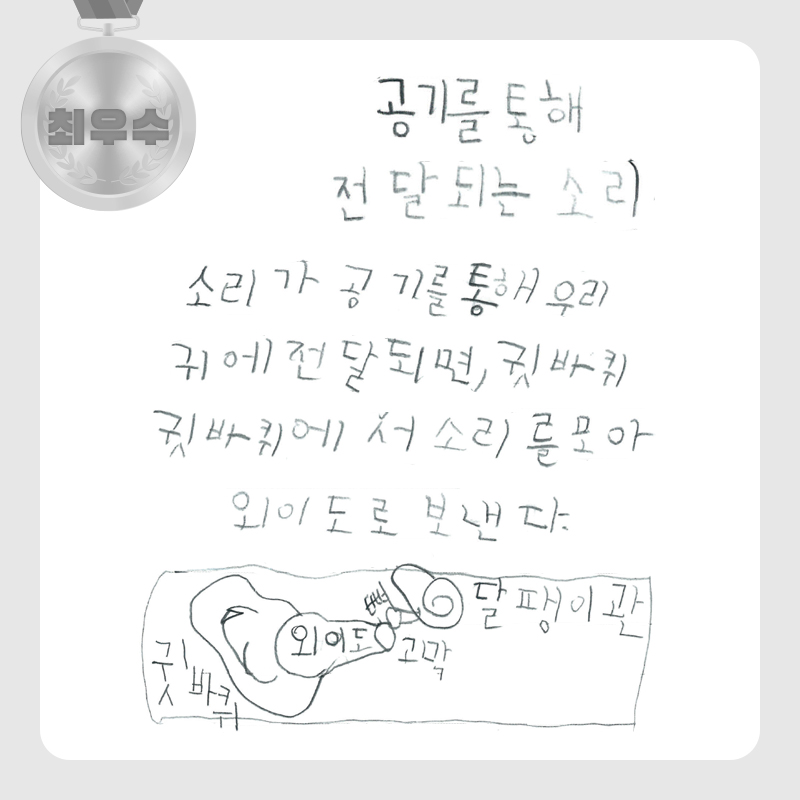 최우수
공기를 통해
전달되는 소리
소리가 공기를 통해 우리
귀에 전달되면, 귓바퀴
귓바퀴에서 소리를 모아
외이도로 보낸다.
뼈
달팽이관
외이도
고막
귓바퀴